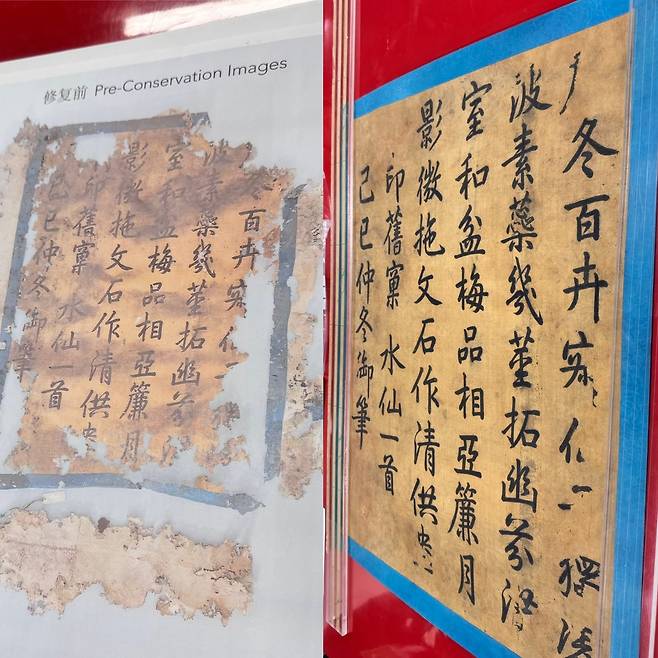 修复前 Pre-Conservation Images
冬百卉
波素幾莖拓幽芬
室和盆梅品相亞簾月
影微拖文石作清供
印舊稾 水仙一首
己巳仲冬御筆
冬百卉寂
波素幾莖拓幽芬
室和盆梅品相亞簾月
影微拖文石作清供
印舊稾 水仙一首
己巳仲冬御筆